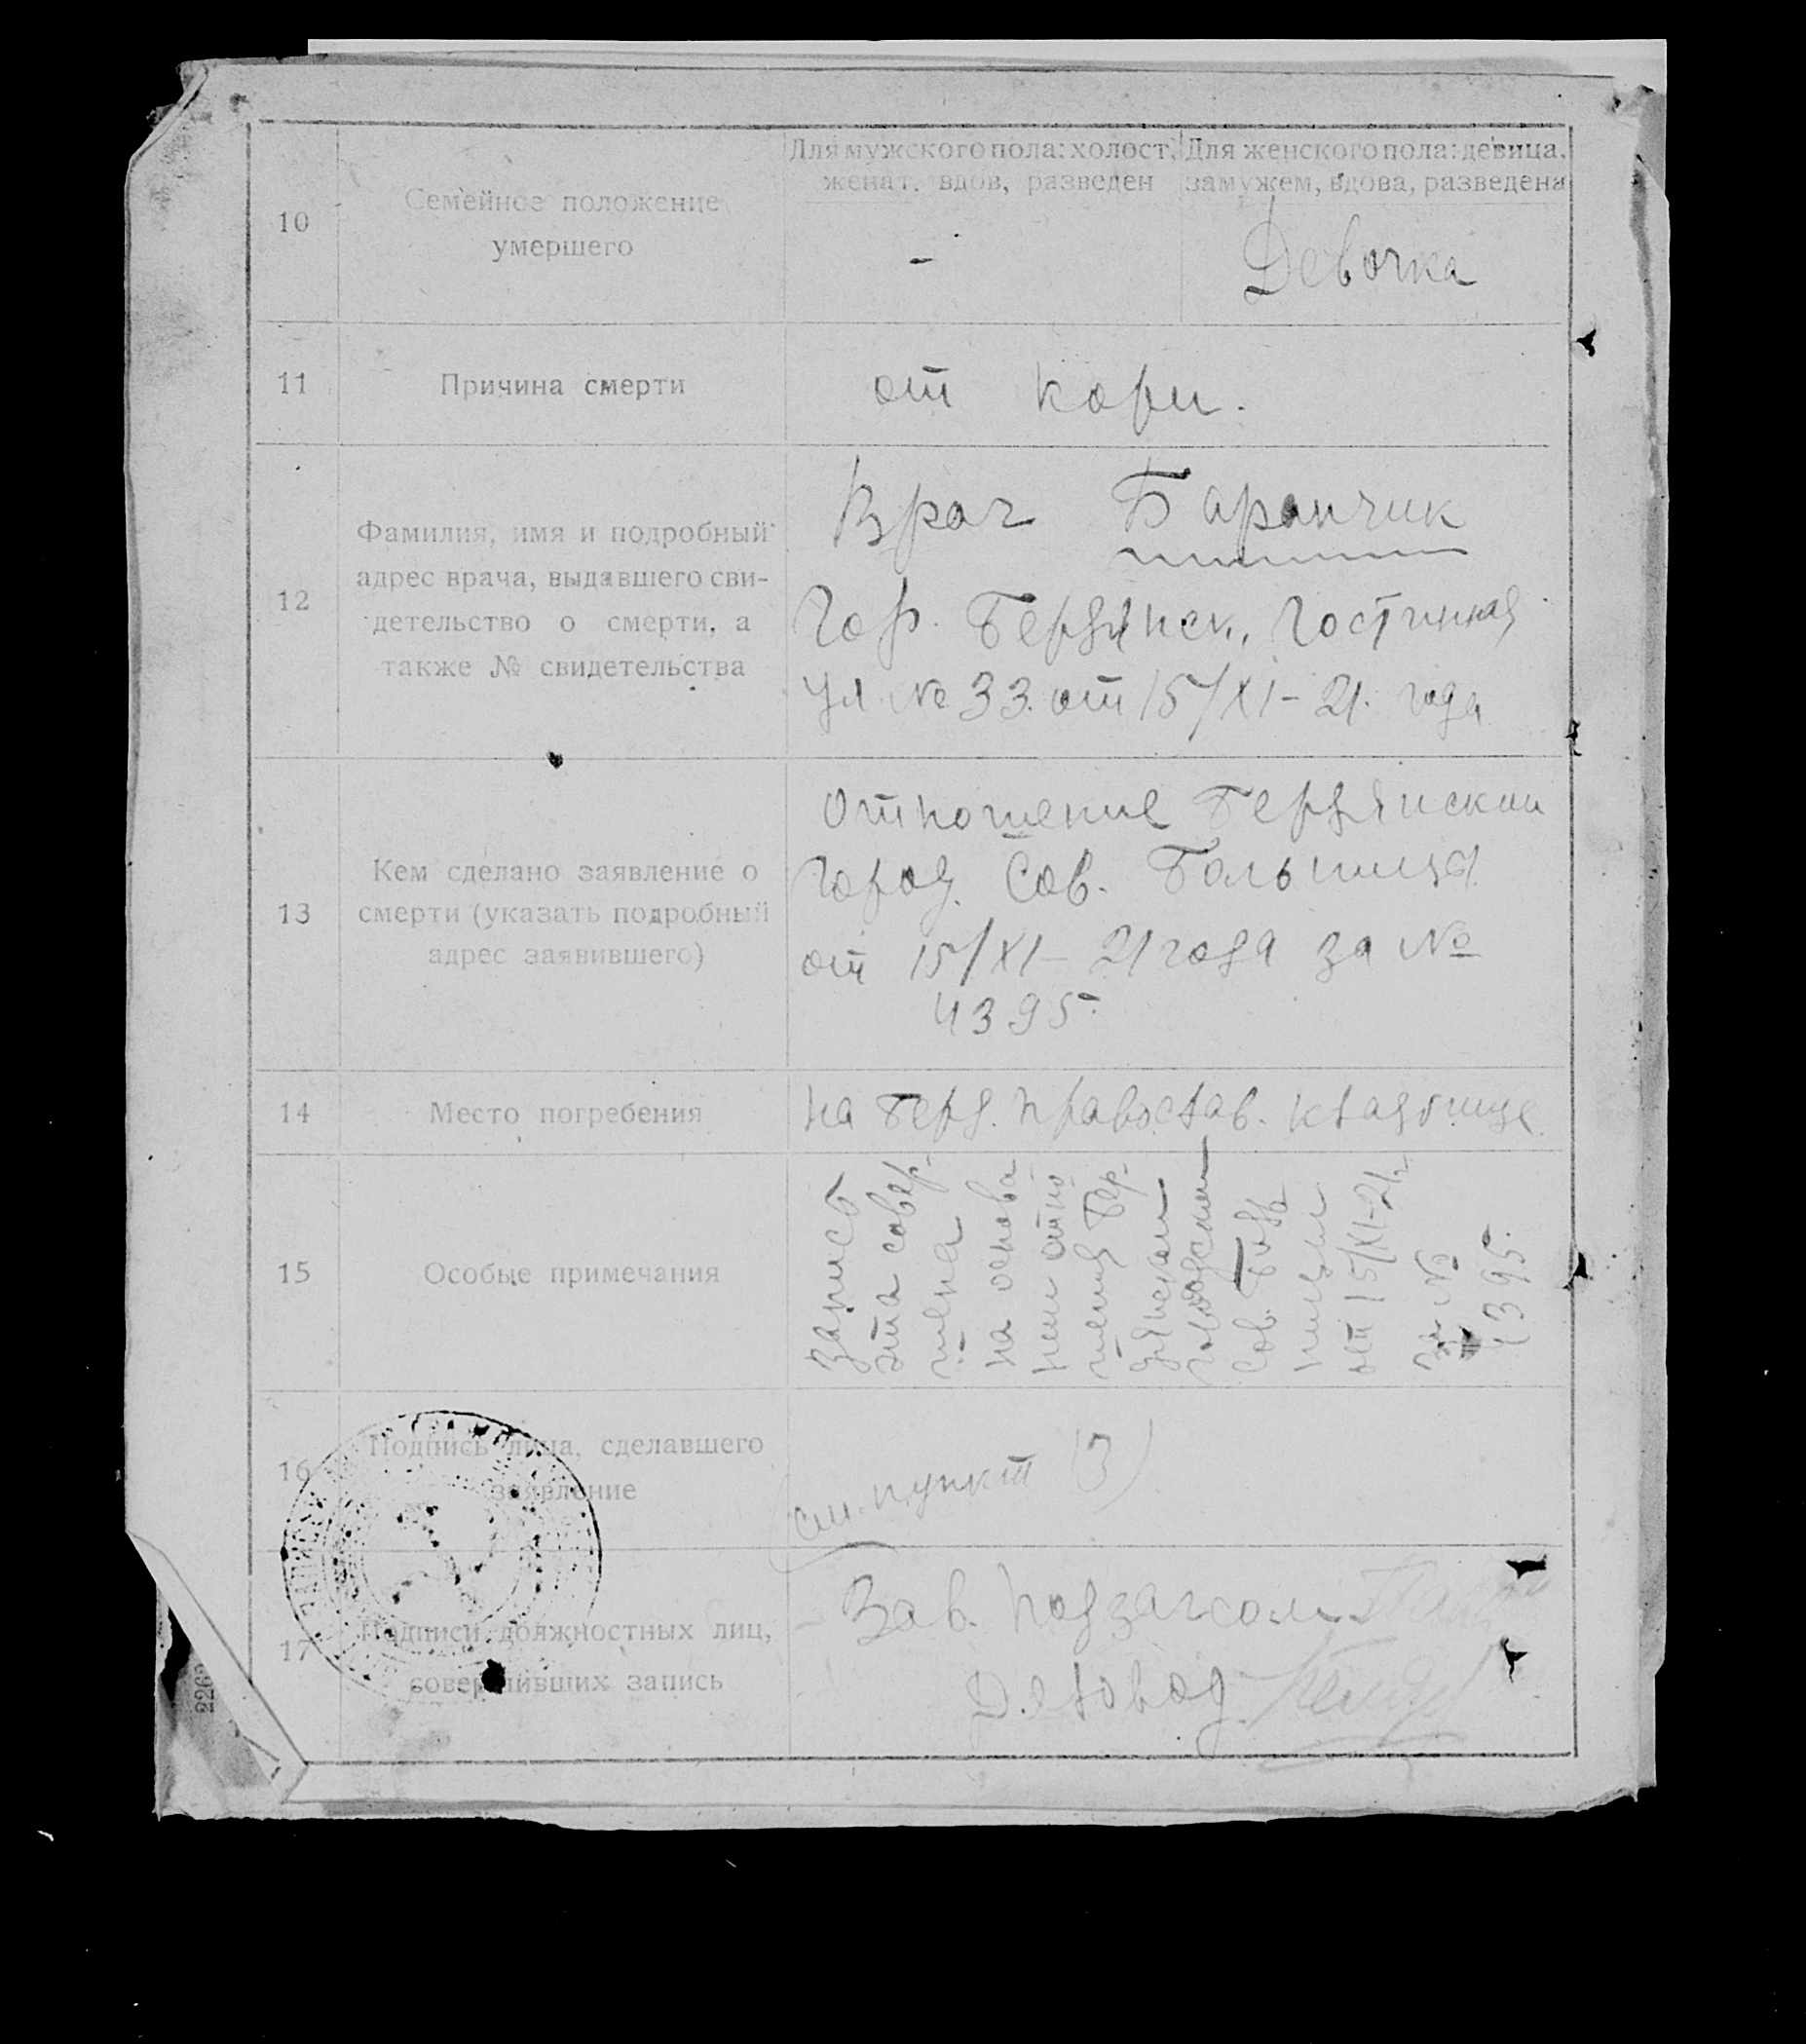 10
Семейное положение
умершего
Для мужского пола: холост,
женат, вдов, разведен
-
Для женского пола: девица,
замужем, вдова, разведена
Девочка
11
Причина смерти
от кори.
12
Фамилия, имя и подробный
адрес врача, выдавшего сви-
детельство о смерти, а
также № свидетельства
Врач Баранчик
Гор. Бердянск, Гостинная
ул. № 33. от 15/XI-21. года
13
Кем сделано заявление о
смерти (указать подробный
адрес заявившего)
Отношение Бердянскои
Город. Сов. Больницы
от 15/XI-21 года за №
4395.
14
Место погребения
на Берд. православ. кладбище
15
Особые примечания
Запись
эта совер-
шена
на основа
нии отно
шения Бер-
дянскои
городскои
Сов. Боль
ницы
от 15/XI-21.
за №
4395.
16
Подпись лица, сделавшего
заявление
(см. пункт 13)
17
Подписи должностных лиц,
совершивших запись
Зав. подзагсом
Деловод.